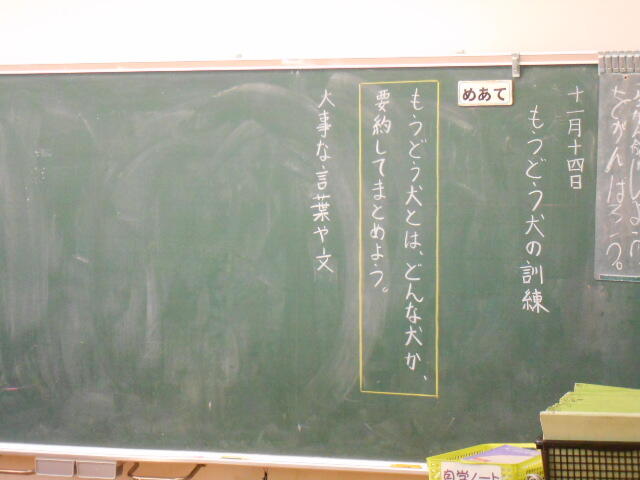 十一月十四日
もうどう犬の訓練
めあて
もうどう犬とは、どんな犬か、
要約してまとめよう。
大事な言葉や文